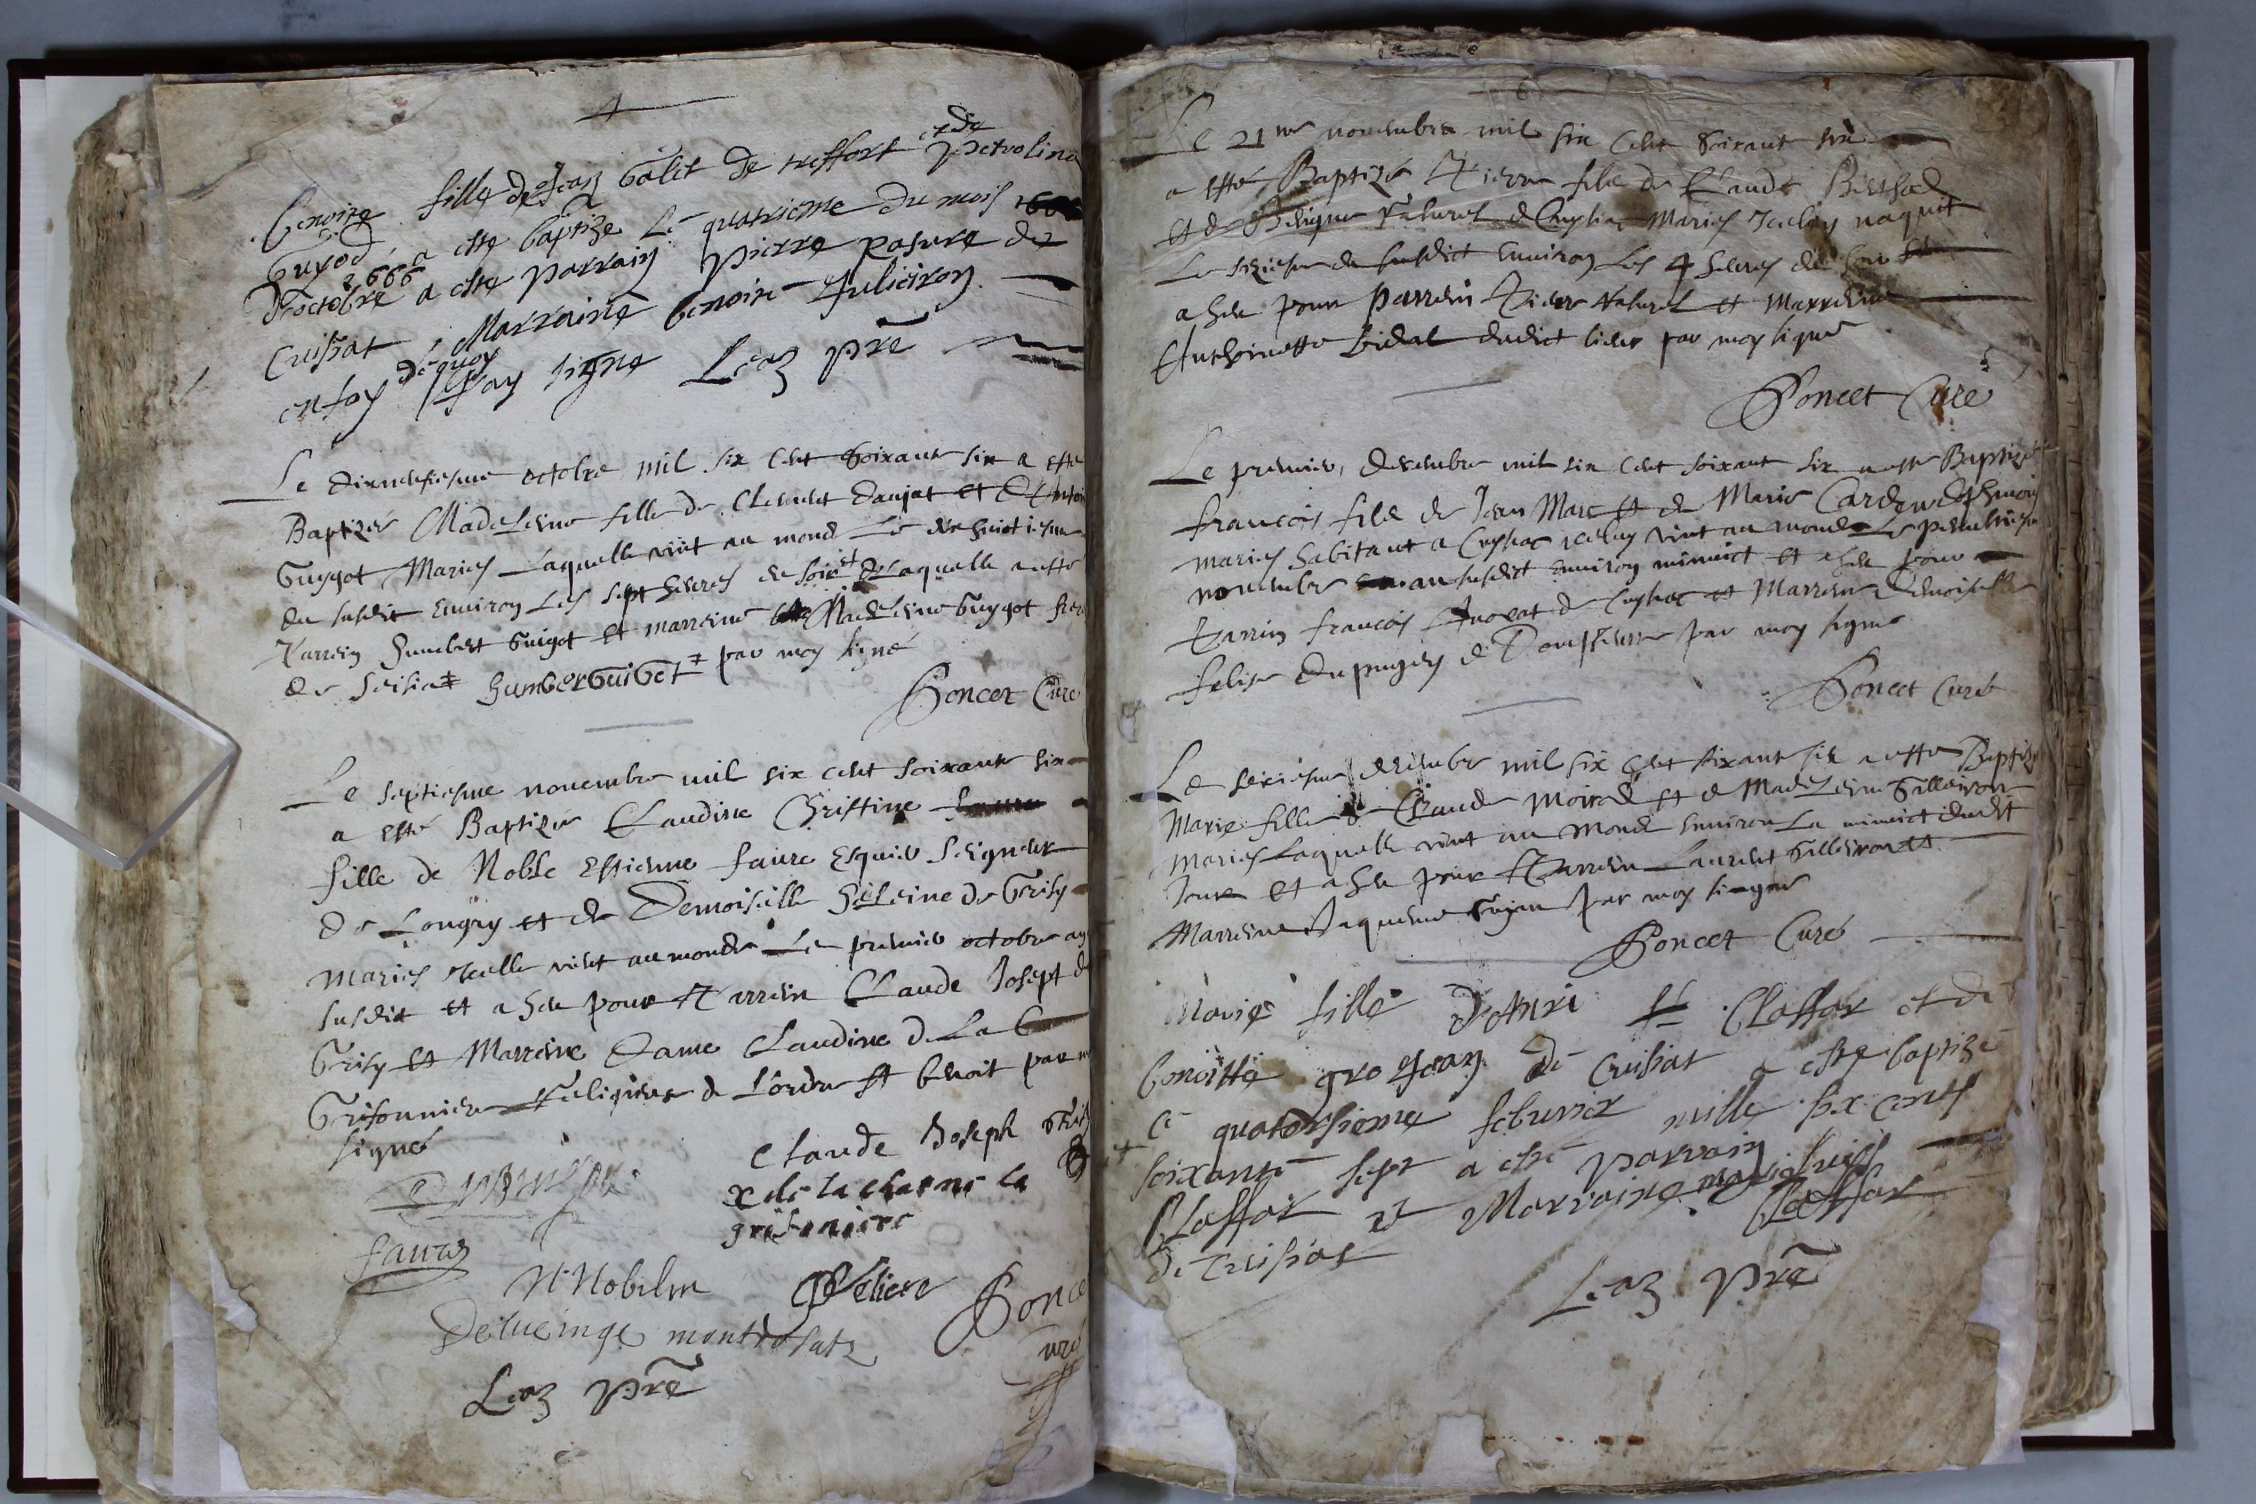 Benoite fille de Jean Galet de treffort et de Petroline
Guyod a este baptize Le quatrieme du mois
d'octobre 1666 a este parrain pierre pasure de
Cuisiat Marraine benoite
en foy dequoy J'ay signe Leaz pre
Le dixneufiesme octobre mil six cent soixante six a esté
Baptizée Madeleine fille de Clement danjat et d'Antoi
Guygot Mariés Laquelle vint au monde Le dix huictiesme
du susdit environ Les sept heures de soir et Laquelle a esté
Parrein humbert Guigot et marreine Madeleine Guygot
de Seisia humber Guigot par moy signé
Poncet Curé
Le septiesme novembre mil six cent soixante six
a esté Baptizée Claudine Christine
fille de Noble Estienne faure Esquier Seigneur
de Longry et de Demoiselle Heleine de Grisy
Mariés Icelle vint au monde Le premier octobre an
susdit et a heu pour Parrein Claude Josept de
Grisy et Marreine Dame Claudine de La
Grisonniere Religieuse de L'ordre St Benoit par m
signé
Claude Joseph Gris
de la charme la
grisoniere
faure
N. Nobilm
Pelicere
Ponce
curé
Delucinge montrosatz
Leaz pre
Le 21me novembre mil six cent soixant six
a esté Baptizé Pierre fils de Claude Berthod
et de Naturel de Cuysiac Mariés Iceluy naquit
Le siziesme du susdict environ Les 4 heures de soir
a heu pour parrein Pierre Naturel et Marreine
Anthoinette Vidal dudict lieu par moy signé
Poncet Curé
Le premier, decembre mil six cent soixant six a esté Baptizé
francois fils de Jean Marc et de Marie Cardon
mariés habitant a Cuysiac iceluy vint au monde Le penultiesme
novembre an susdict environ minuict et a heu pour
Parrin francois Avocat de Cuysiac et Marreine Demoiselle
felise Dupugey de Dompierre par moy signé
Poncet Curé
Le seziesme decembre mil six cent soixant six a esté Baptizé
Marie fille de Claude Moirod et de Madeleine Galleiron
Mariés Laquelle vint au Monde environ La minuict dudit
Jour et a heu pour Parrein Laurent Galleiron et
Marreine Jaquême Gujon par moy signé
Poncet Curé
Marie fille d'Anri Claffar et de
benoitte gro Jean de Cuisiat a este baptize
Le quatorsieme februier mille six cents
soixante sept a esté parrain
Claffar et Marraine marie
Claffar
de Cuisiat
Leaz pre